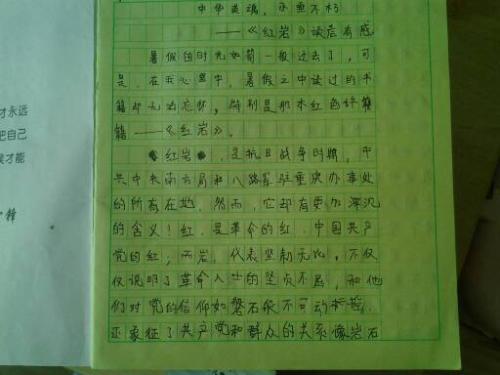 中华英魂，永垂不朽
——《红岩》读后有感
暑假的时光如箭一般过去了，可
是，在我心里中，暑假之中读过的书
籍却无法忘怀，特别是那本红色书籍
——《红岩》。
"红岩"，是抗日战争时期，中
共中央南方局和八路军驻重庆办事处
的所有在地，然而，它却有更加深沉
的含义！红，是革命的红，中国共产
党的红；而岩，代表坚韧无比，不仅
仅说明了革命人士的坚贞不屈，和他
们对党的信仰如磐石般不可动摇，
还象征了共产党和群众的关系像岩石
才永远
把自己
才能